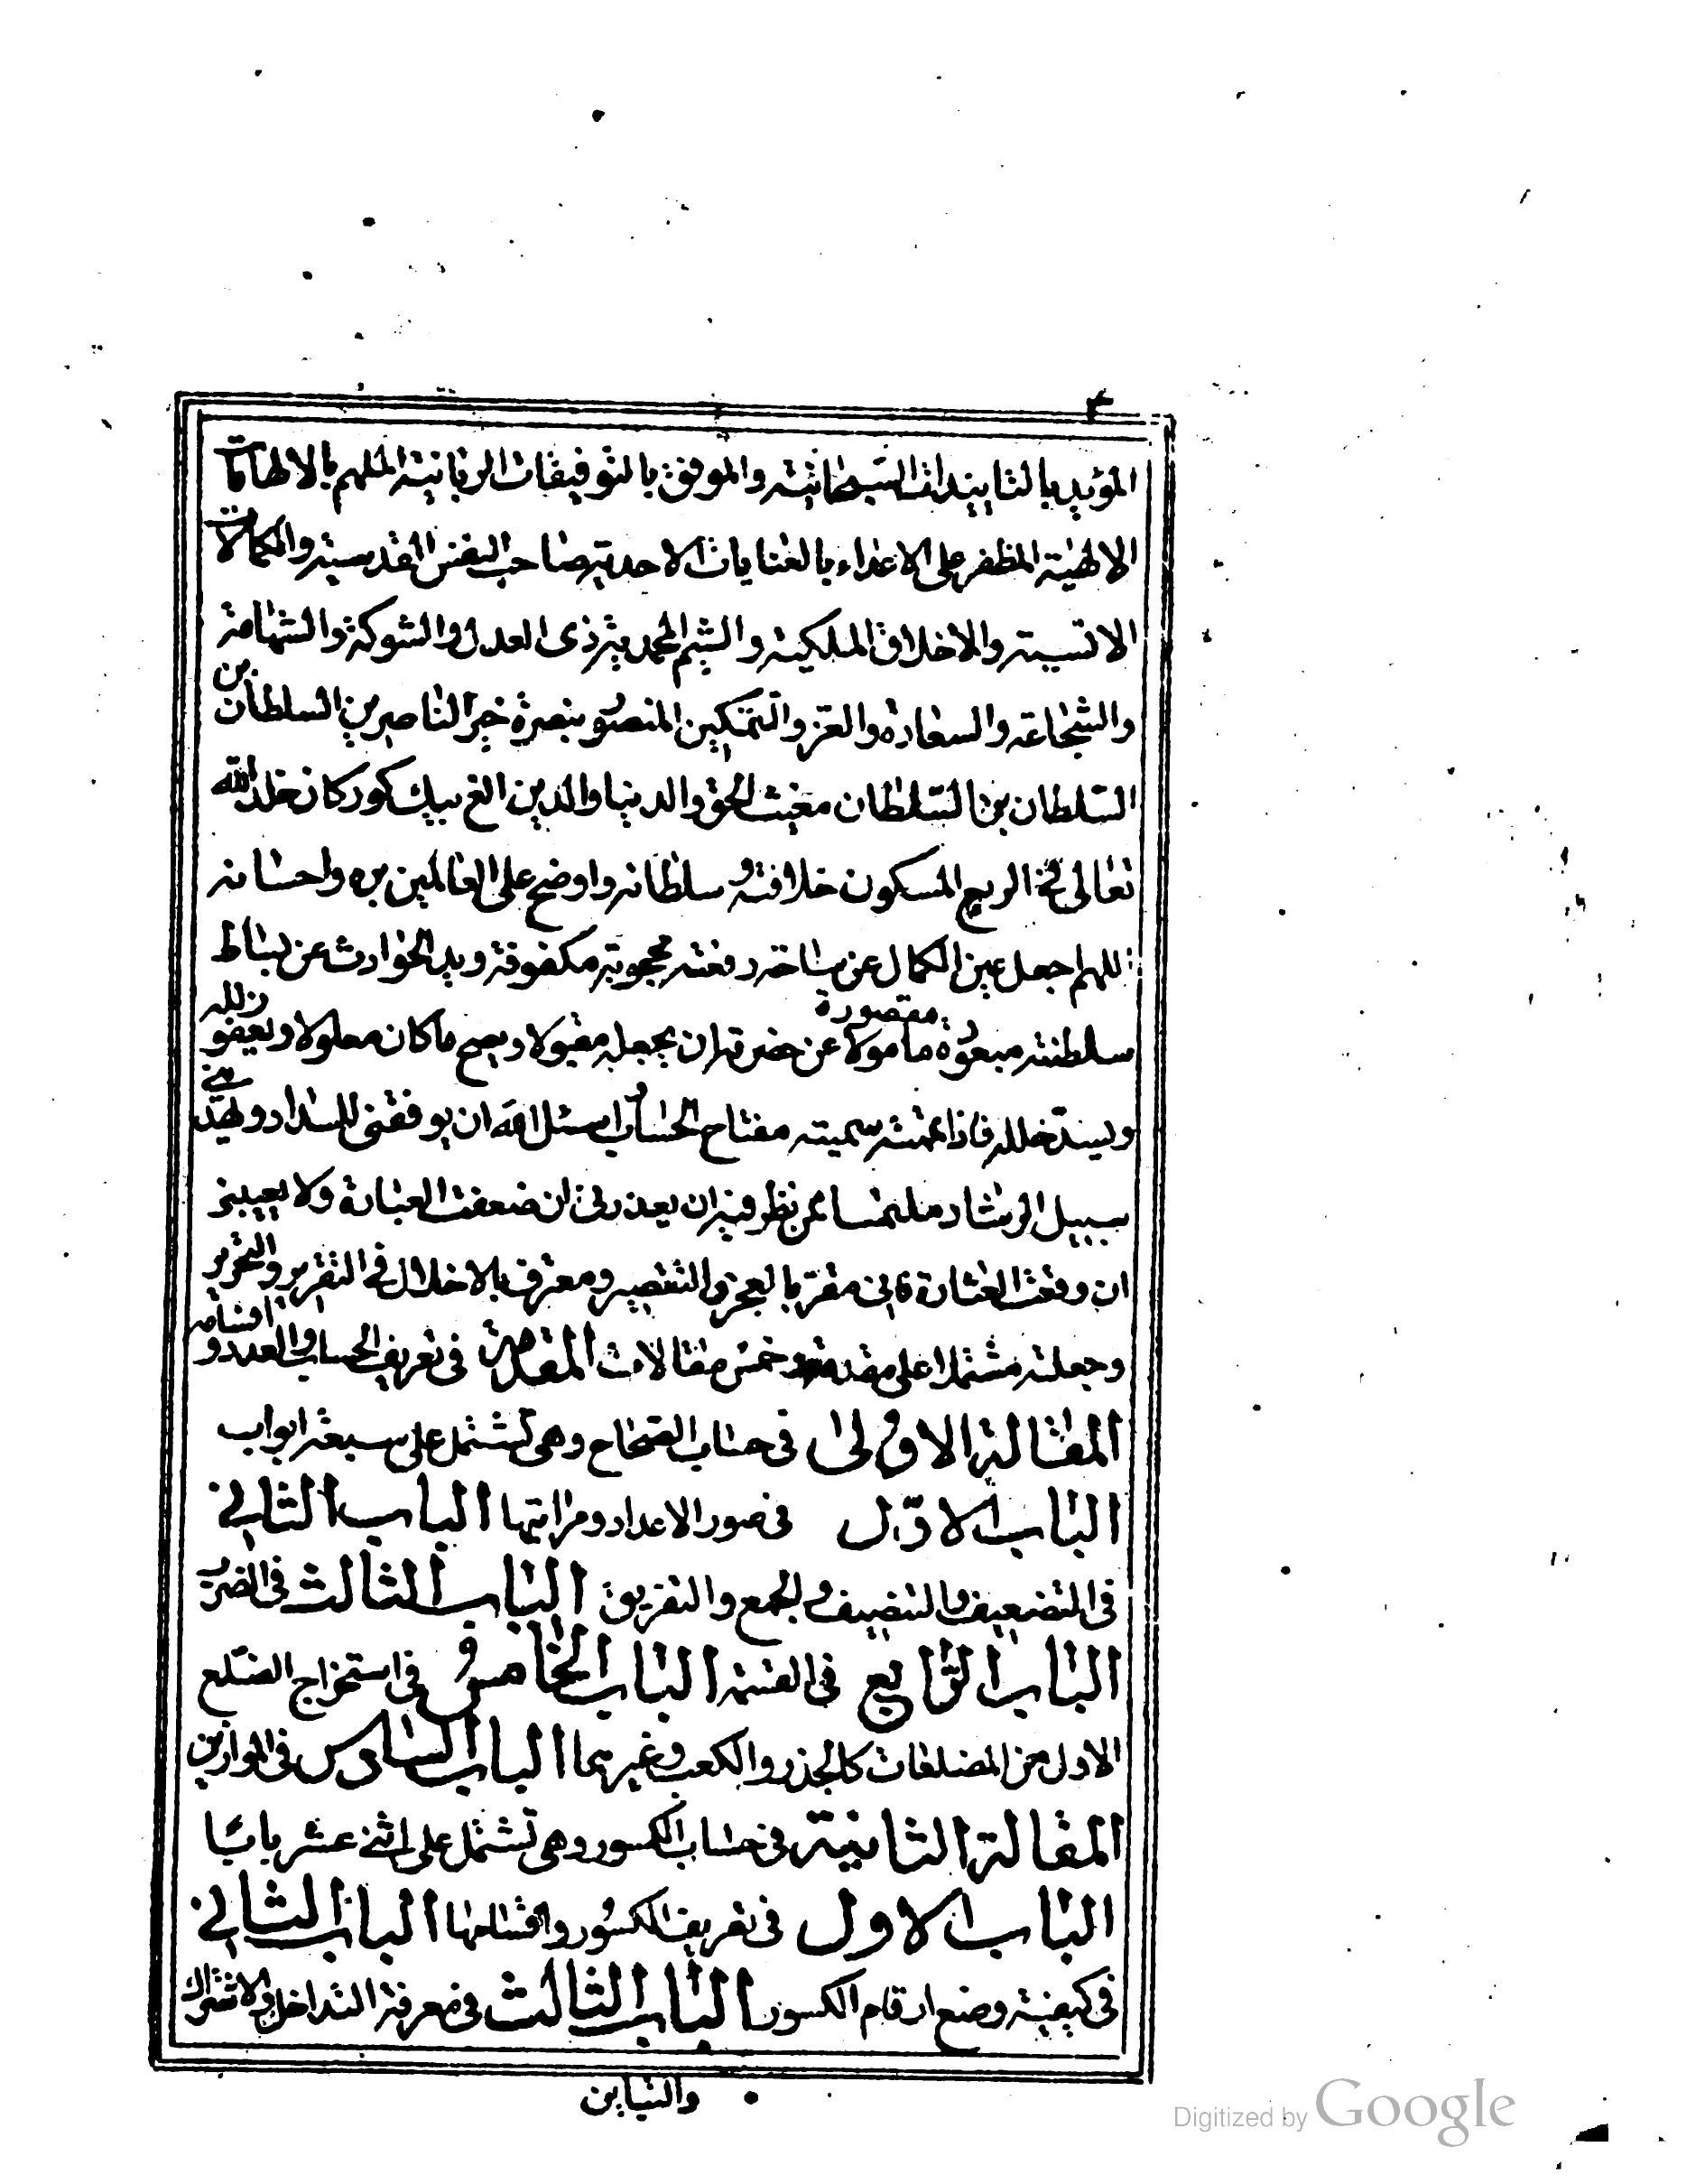 ٤
المؤيد بالتاييدات السبحانية والموفق بالتوفيقات الربانية الملهم بالالهامات
الالهية المظفر على الاعداء بالعنايات الاحدية صاحب النفس القدسية والكمالات
الانسية والاخلاق الملكية والشيم المحمدية ذى العدل والشوكة والشهامة
والشجاعة والسعادة والعز والتمكين المنصور بنصرة خير الناصرين السلطان بن
السلطان بن السلطان مغيث الحق والدنيا والدين الغ بيك كوركان خلد الله
تعالى فى الربع المسكون خلافته و سلطانه واوضح على العالمين بره واحسانه
اللهم اجعل عين الكمال عن ساحة رفعته محجوبة مكفوفة ويد الحوادث عن بساط
سلطنته مقصورة مأمولا عن حضرته ان يجعله مقبولا ويصح ما كان معلولا ويعفو زلله
ويسد خلله فاذا تممته سميته مفتاح الحساب واسئل الله ان يوفقنى للسداد ويهدينى
سبيل الرشاد ملتمسا ممن نظر فيه ان يعذرنى ان ضعفت العبارة ولا يعيبنى
ان وقعت العثارة فانى مقر بالعجز والتقصير ومعترف بالاخلال فى التقرير والتحرير
وجعلته مشتملا على مقدمة وخمس مقالات المقدمة فى تعريف الحساب والعدد و اقسامه
المقالة الاولى فى حساب الصحاح وهى تشتمل على سبعة ابواب
الباب الاول فى صور الاعداد ومراتبها الباب الثانى
فى التضعيف والتنصيف والجمع والتفريق الباب الثالث فى الضرب
الباب الرابع فى القسمة الباب الخامس فى استخراج الضلع
الاول من المضلعات كالجذر والكعب وغيرهما الباب السادس فى الموازين
المقالة الثانية فى حساب الكسور وهى تشتمل على اثنى عشر بابا
الباب الاول فى تعريف الكسور واقسامها الباب الثانى
فى كيفية وضع ارقام الكسور الباب الثالث فى معرفة التداخل والاشتراك
والتباين
Digitized by Google